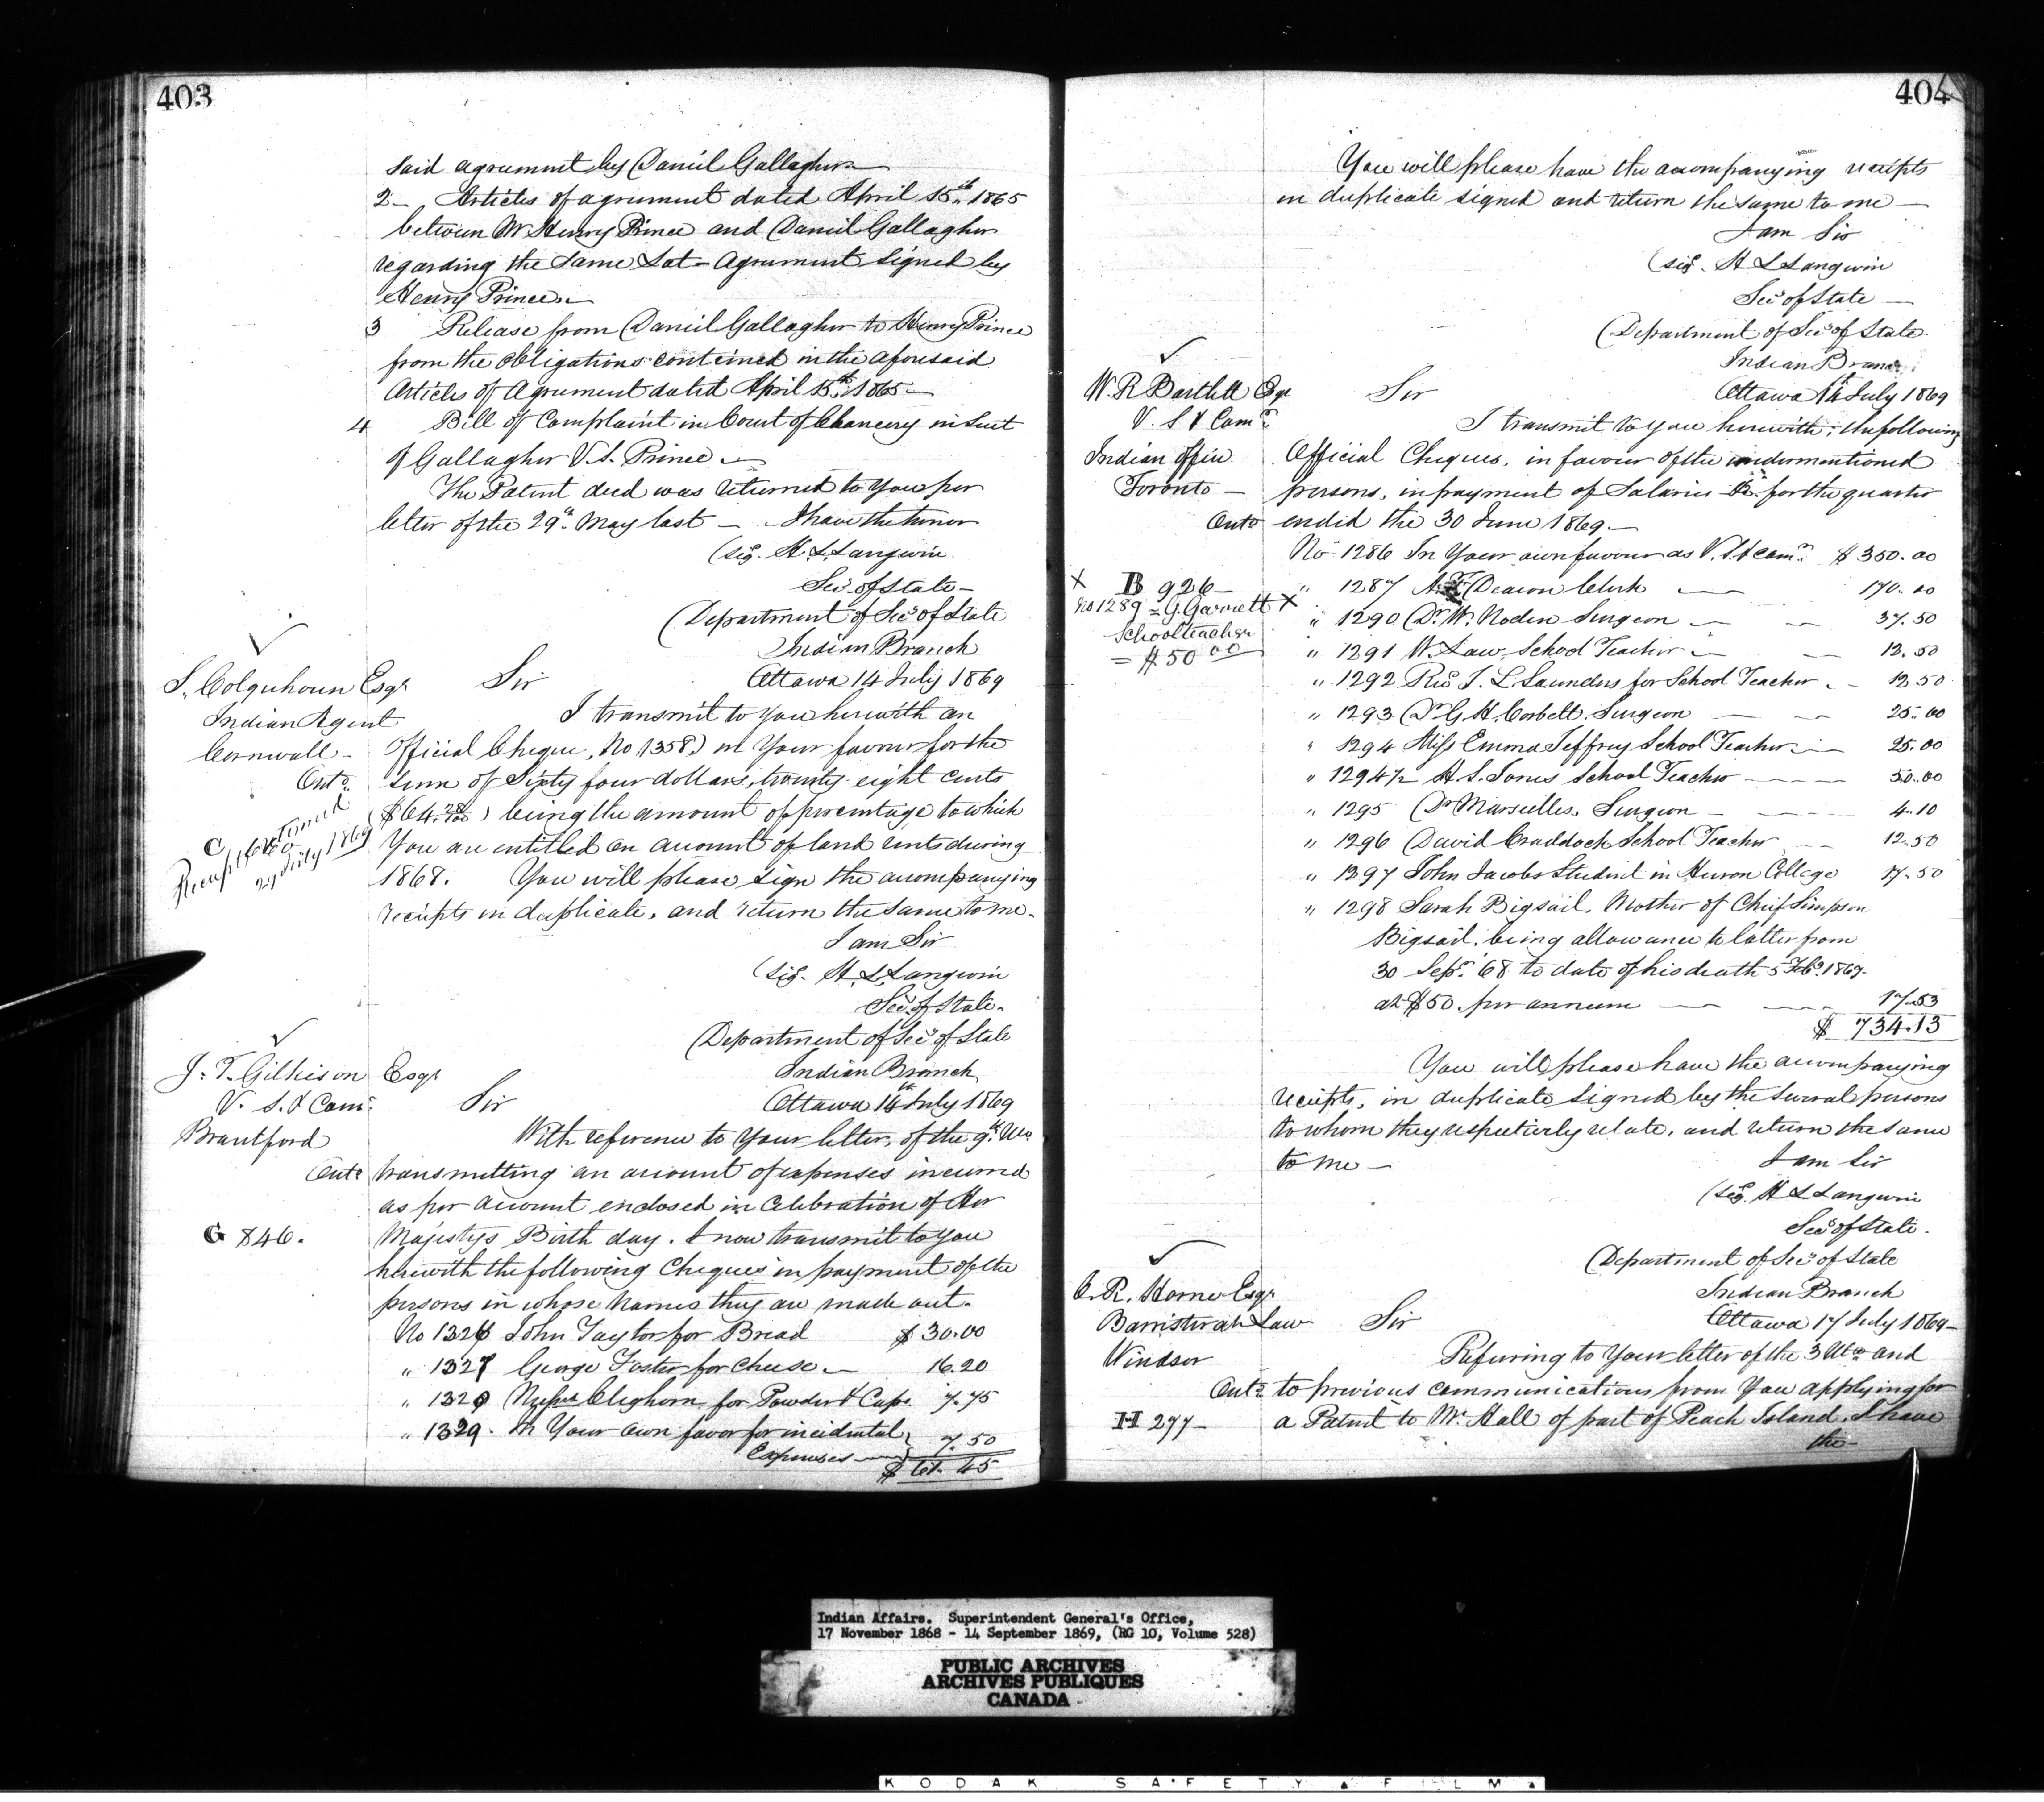 403
said agreement by Daniel Gallagher —
2 — Articles of agreement dated April 15th 1865
between Mr Henry Prince and Daniel Gallagher
regarding the same Lot — Agreement signed by
Henry Prince. —
3 Release from Daniel Gallagher to Henry Prince
from the obligations contained in the aforesaid
Articles of Agreement dated April 15th 1865 —
4 Bill of Complaint in Court of Chancery in suit
of Gallagher V.S. Prince —
The Patent deed was returned to you per
letter of the 29th May last — I have the honor
(sig. H. L. Langevin
Secy of State —
Department of Secy of State
Indian Branch
Ottawa 14 July 1869
S. Colquhoun Esqr
Indian Agent
Cornwall —
Onto
C
Receipts returned
29 July 1869
Sir
I transmit to you herewith an
Official Cheque, No 1358) in your favour for the
sum of Sixty four dollars, twenty eight cents
($64.28/100) being the amount of percentage to which
you are entitled on account of land rents during
1868. You will please sign the accompanying
receipts in duplicate, and return the same to me —
I am Sir
(sig. H. L. Langevin
Secy of State.
Department of Secy of State
Indian Branch
Ottawa 14th July 1869
J. T. Gilkison Esqr
V. S. & Comr
Brantford
Onto
G 846.
Sir
With reference to your letter, of the 9th Ulto
transmitting an account of expenses incurred
as per account enclosed in Celebration of Her
Majestys Birth day. I now transmit to you
herewith the following Cheques in payment of the
persons in whose names they are made out.
No 1326 John Taylor for Bread $ 30.00
" 1327 George Foster for Cheese — 16.20
" 1328 Cleghorn for Powder & Caps. 7.75
" 1329. In Your own favor for incidental
Expenses — 7.50
$ 61.45
404
You will please have the accompanying receipts
in duplicate signed and return the same to me —
I am Sir
(sig. H L Langevin
Secy of State —
Department of Secy of State
Indian Branch
Ottawa 14th July 1869
W. R. Bartlett Esqr
V. S & Comr
Indian Office
Toronto —
Onto
X B 926 —
No 1289 = G. Garrett X
Schoolteacher
= $50 00
Sir
I transmit to you herewith, the following
Official Cheques, in favour of the undermentioned
persons, in payment of Salaries &c. for the quarter
ended the 30 June 1869 —
No 1286 In Your own favour as V. S & Comr. $ 350.00
" 1287 Deacon Clerk — 170.00
" 1290 Dr. W. Noden Surgeon — — 37.50
" 1291 W. Law, School Teacher — — 12.50
" 1292 Revd J. L Saunders for School Teacher. — 12.50
" 1293 Dr G. H. Corbett, Surgeon — — 25.00
" 1294 Miss Emma Jeffrey School Teacher — 25.00
" 1294½ H. S. Jones School Teacher — — — 50.00
" 1295 Dr Marseilles, Surgeon — — — 4.10
" 1296 David Craddock School Teacher — — 12.50
" 1297 John Jacobs Student in Huron College 17.50
" 1298 Sarah Bigsail, Mother of Chief Simpson
Bigsail, being allowance to latter from
30 Sepr '68 to date of his death 5 Feby. 1869.
at $50. per annum — — — 17.53
$ 734.13
You will please have the accompanying
receipts, in duplicate signed by the several persons
to whom they respectively relate, and return the same
to me —
I am Sir
(sig. H L Langevin
Secy of State.
Department of Secy of State
Indian Branch
Ottawa 17 July 1869 —
C. R. Horne Esqr
Barrister at Law
Windsor
Onto
H 277 —
Sir
Refering to Your letter of the 3 Ulto and
to previous communications from You applying for
a Patent to Mr Hall of part of Peach Island. I have
the —
Indian Affairs. Superintendent General's Office,
17 November 1868 - 14 September 1869, (RG 10, Volume 528)
PUBLIC ARCHIVES
ARCHIVES PUBLIQUES
CANADA
KODAK SAFETY FILM